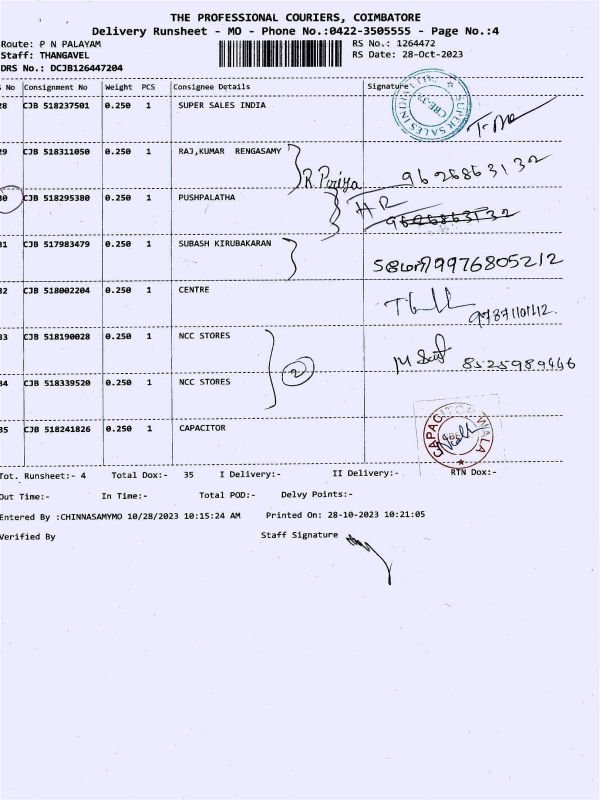 THE PROFESSIONAL COURIERS, COIMBATORE
Delivery Runsheet - MO - Phone No.:0422-3505555 - Page No.:4
Route: P N PALAYAM RS No.: 1264472
Staff: THANGAVEL RS Date: 28-Oct-2023
DRS No.: DCJB126447204
No Consignment No Weight PCS Consignee Details Signature
28 CJB 518237501 0.250 1 SUPER SALES INDIA
SUPER SALES INDIA CBE-
29 CJB 518311050 0.250 1 RAJ,KUMAR RENGASAMY
R. Priya 9626863132
30 CJB 518295380 0.250 1 PUSHPALATHA
9626863132
31 CJB 517983479 0.250 1 SUBASH KIRUBAKARAN
9976805212
32 CJB 518002204 0.250 1 CENTRE
33 CJB 518190028 0.250 1 NCC STORES
2 8525989446
34 CJB 518339520 0.250 1 NCC STORES
35 CJB 518241826 0.250 1 CAPACITOR
CAPACITOR WALA CBE
Tot. Runsheet:- 4 Total Dox:- 35 I Delivery:- II Delivery:- RTN Dox:-
Out Time:- In Time:- Total POD:- Delvy Points:-
Entered By :CHINNASAMYMO 10/28/2023 10:15:24 AM Printed On: 28-10-2023 10:21:05
Verified By Staff Signature